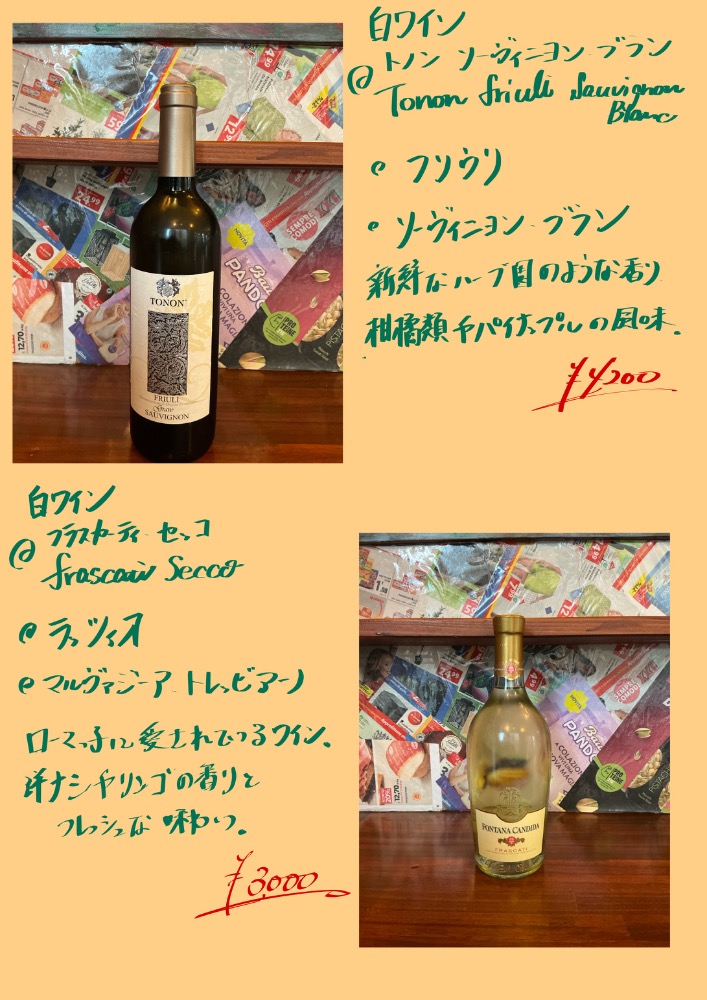 白ワイン
トノン ソーヴィニヨン・ブラン
Tonon friuli Sauvignon
Blanc
フリウリ
ソーヴィニヨン・ブラン
新鮮なハーブ園のような香り
柑橘類やパイナップルの風味。
¥4,200
TONON
FRIULI
Grave
SAUVIGNON
24.99
NOVITÀ
PANDO
COLAZIONE
SEMPRE
COMODI
PISTA
12,70
白ワイン
フラスカーティ セッコ
frascati Secco
ラッツィオ
マルヴァジーア トレッビアーノ
ローマっ子に愛されているワイン。
洋ナシやリンゴの香りと
フレッシュな味わい。
¥3,000
FONTANA CANDIDA
FRASCATI
24.99
NOVITÀ
SEMPRE
COMODI
20%
12,70